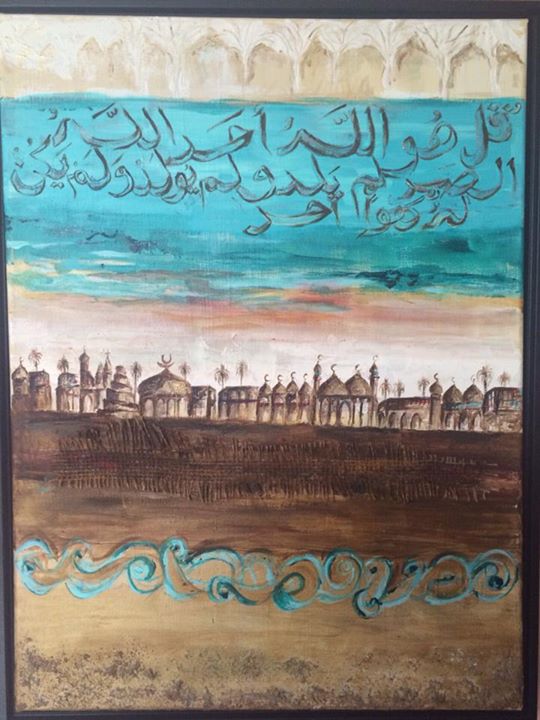 قُل هُو اللَّهُ أحد اللَّهُ
الصمد لم يلد ولم يولد ولم يكن
له كفوا أحد